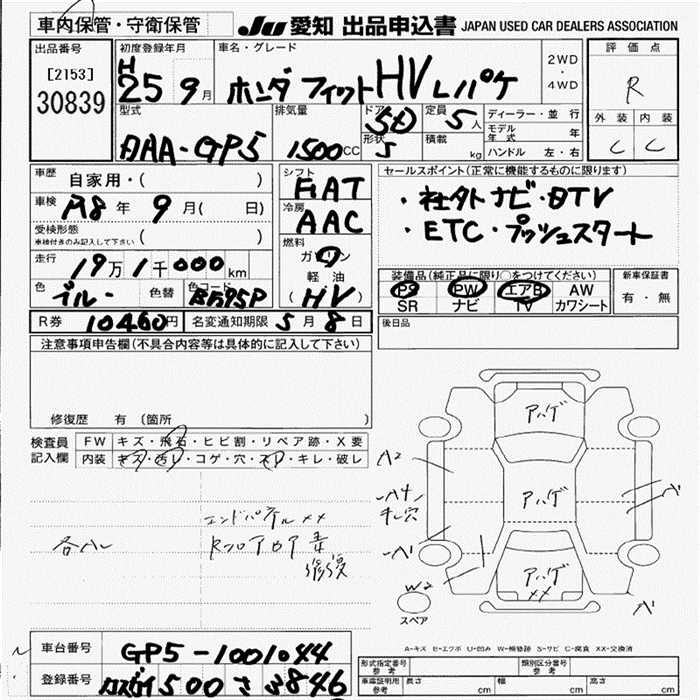 車内保管・守衛保管
JU 愛知 出品申込書 JAPAN USED CAR DEALERS ASSOCIATION
出品番号
[2153]
30839
初度登録年月
H
25 9月
車名・グレード
ホンダ フィット HV Lパケ
2WD
・
4WD
評価点
R
外装 内装
C C
型式
DAA-GP5
排気量
1500cc
ドア 5D
形状 5
定員 5人
積載 kg
ディーラー・並行
モデル年式 年
ハンドル 左・右
車歴 自家用・( )
車検 R8年 9月( 日)
受検形態
車検付きのみ記入して下さい ( )
走行
19万1千000km
色 ブルー 色替 色コード B595P
シフト
FAT
冷房
AAC
燃料
ガソリン
軽油
(HV)
セールスポイント(正常に機能するものに限ります)
・社外ナビ・DTV
・ETC・プッシュスタート
装備品(純正品に限り○をつけてください)
PS PW エアB AW
SR ナビ TV カワシート
新車保証書
有・無
R券 10460円 名変通知期限 5月8日
後日品
注意事項申告欄(不具合内容等は具体的に記入して下さい)
修復歴 有(箇所
検査員
記入欄
FW キズ・飛石・ヒビ割・リペア跡・X要
内装 キズ・汚レ・コゲ・穴・スレ・キレ・破レ
エンドパネル××
各ハレ
修復
アハゲ
アハゲ
アハゲ
××
A2
W2
スペア
A-キズ E-エクボ U-凹み W-補修跡 S-サビ C-腐食 XX-交換済
車台番号 GP5-1001044
登録番号 500 さ 3846
形式指定番号
参考
類別区分番号
参考
車庫証明用
参考
長さ cm
幅 cm
高さ cm